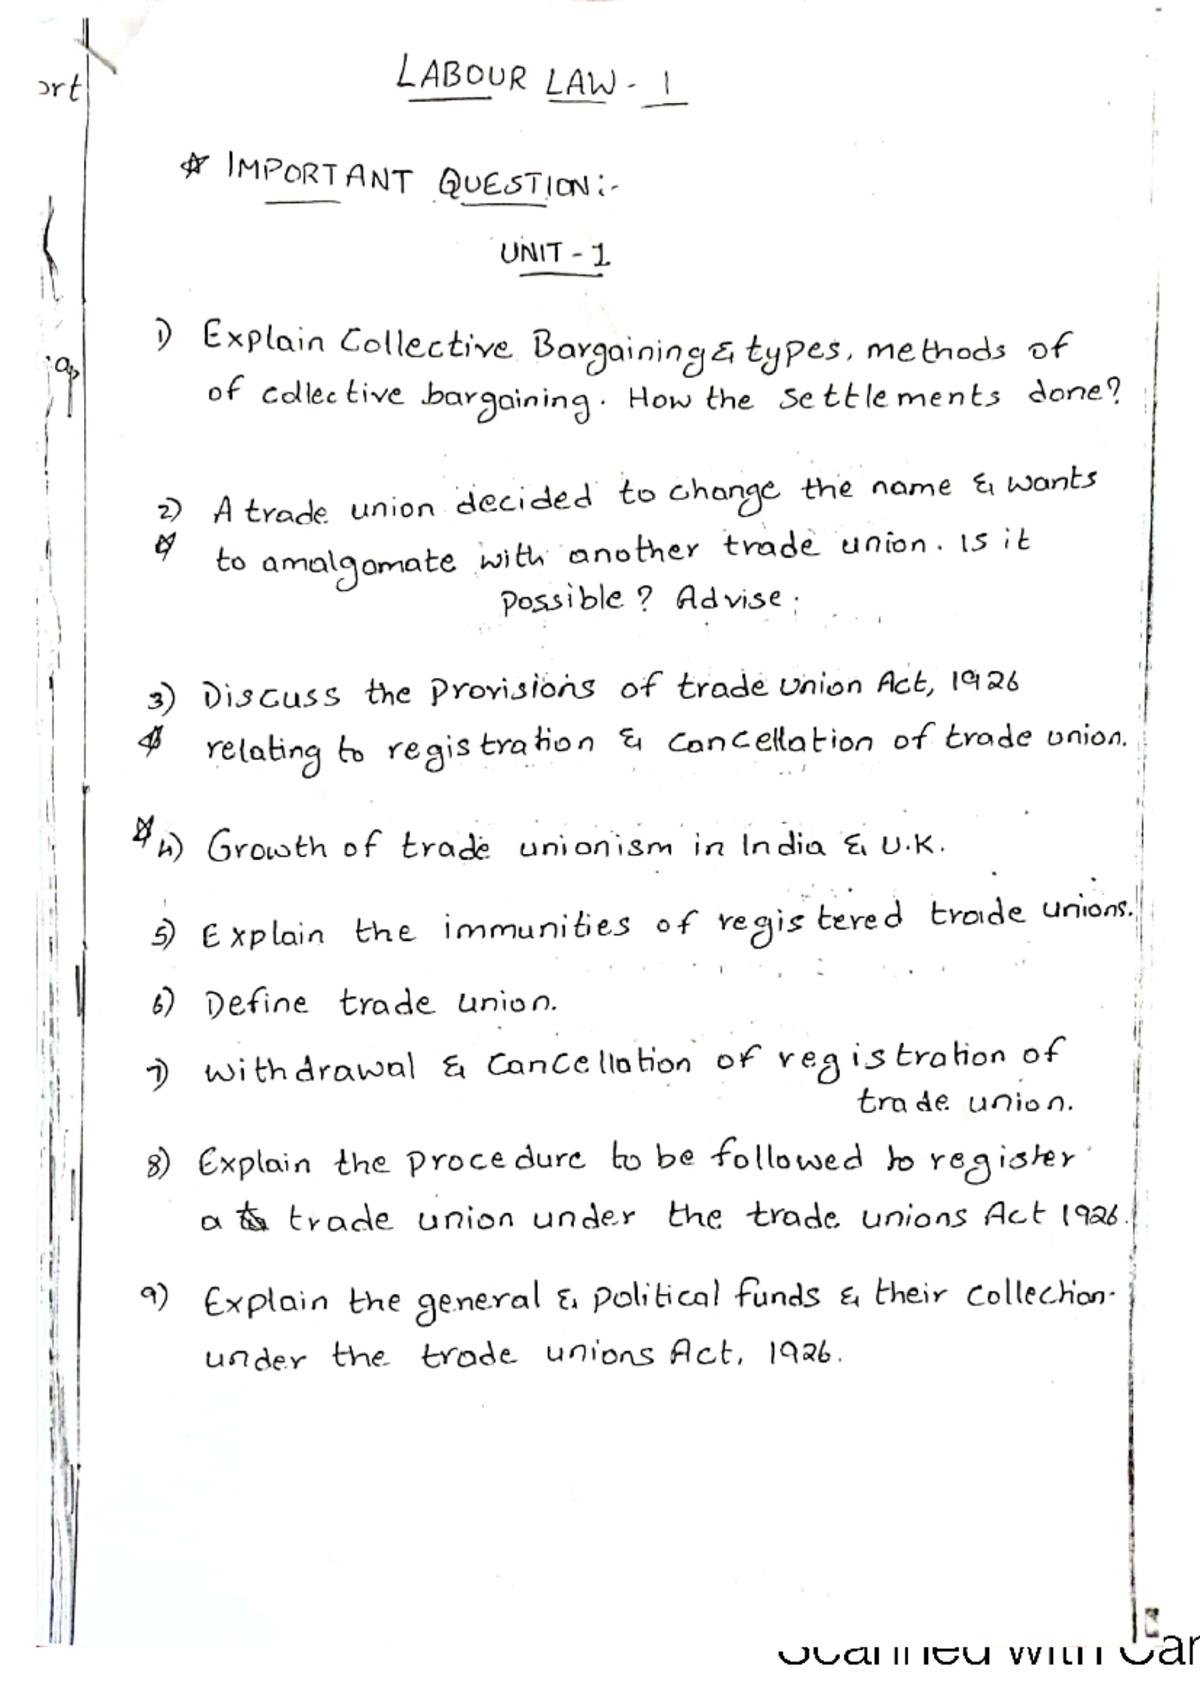 ort
LABOUR LAW - 1
☆ IMPORTANT QUESTION:-
UNIT - 1
1) Explain Collective Bargaining & types, methods of
ap
of collective bargaining. How the settlements done?
2) A trade union decided to change the name & wants
☆ to amalgomate with another trade union. Is it
Possible? Advise:
3) Discuss the Provisions of trade union Act, 1926
☆ relating to registration & cancellation of trade union.
☆ 4) Growth of trade unionism in India & U.K.
5) Explain the immunities of registered trade unions.
6) Define trade union.
7) withdrawal & Cancellation of registration of
trade union.
8) Explain the procedure to be followed to register
a trade union under the trade unions Act 1926.
9) Explain the general & political funds & their collection
under the trade unions Act, 1926.
Scanned with Car